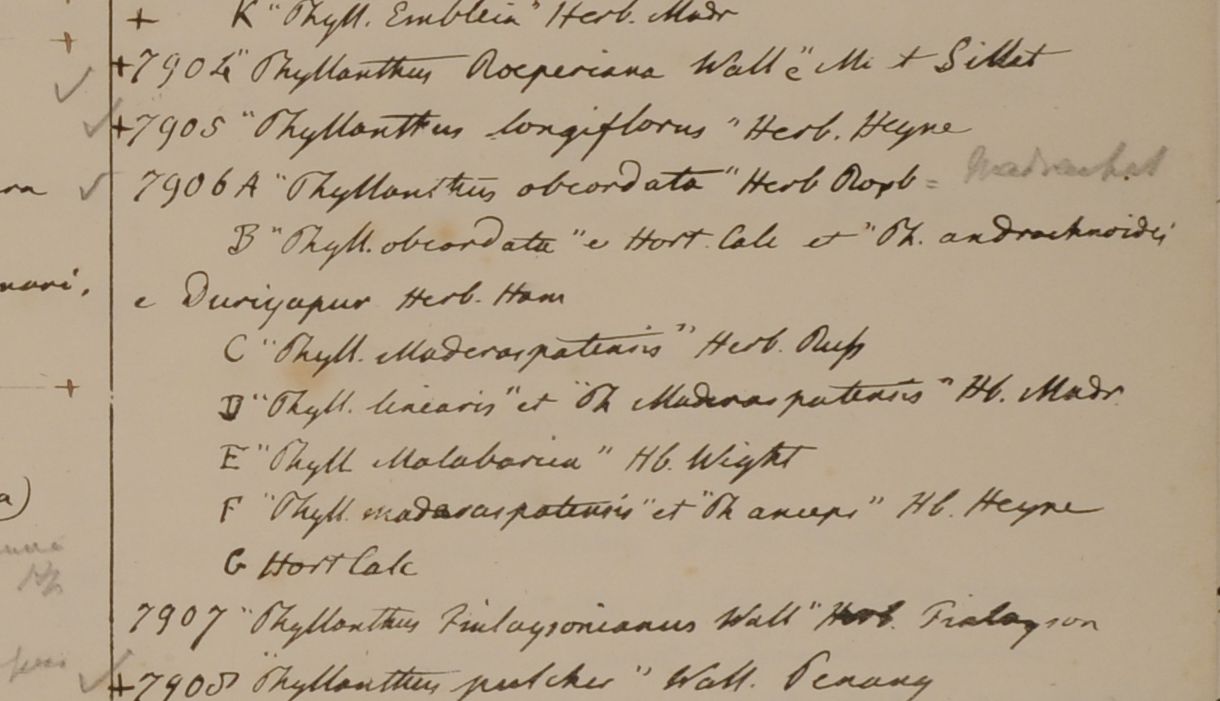 + K "Phyll. Emblein" Herb. Madr
+7904 "Phyllanthus Roeperiana Wall" e M. t Sillat
+7905 "Phyllanthus longiflorus" Herb. Heyne
ra 7906 A "Phyllanthus obcordata" Herb Roxb =
B "Phyll. obcordata" e Hort. Calc et "Ph. andrachnoides
e Duriyapur Herb. Ham
C "Phyll. Maderaspatensis" Herb. Russ
D "Phyll. linearis" et "Ph Maderaspatensis" Hb. Madr
E "Phyll Malabarica" Hb. Wight
a) F "Phyll. maderaspatensis" et "Ph anceps" Hb. Heyne
G Hort Calc
7907 "Phyllanthus Finlaysonianus Wall" Herb. Finlayson
+7908 "Phyllanthus pulcher" Wall. Penang